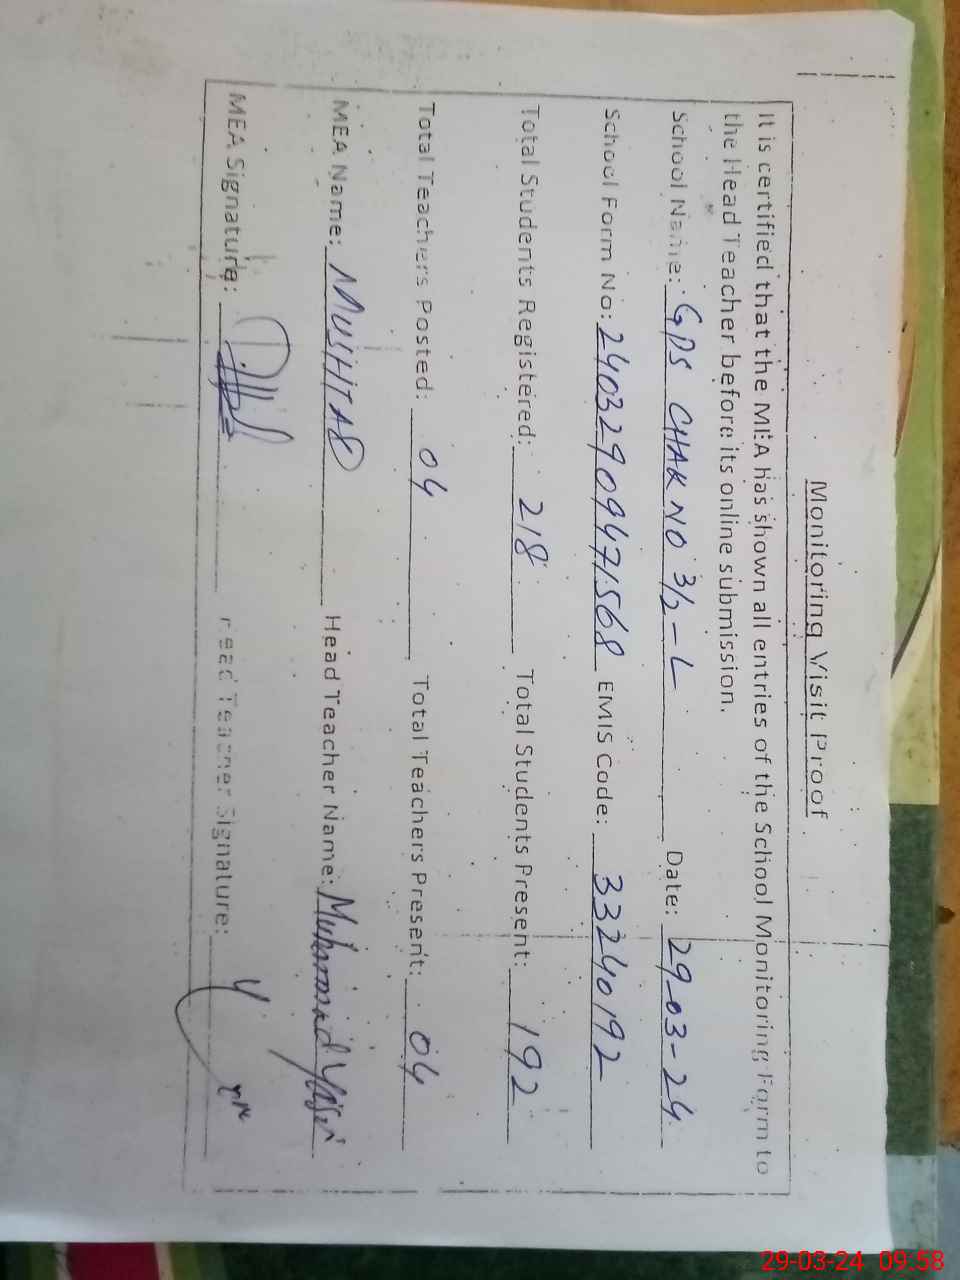 Monitoring Visit Proof
It is certified that the MEA has shown all entries of the School Monitoring Form to
the Head Teacher before its online submission.
School Name: GPS CHAK NO 3/2-L Date: 29-03-24
School Form No: 24032909471568 EMIS Code: 33240192
Total Students Registered: 218 Total Students Present: 192
Total Teachers Posted: 04 Total Teachers Present: 04
MEA Name: MUSHTAQ Head Teacher Name: Muhammad Yasir
MEA Signature: Head Teacher Signature:
29-03-24 09:58